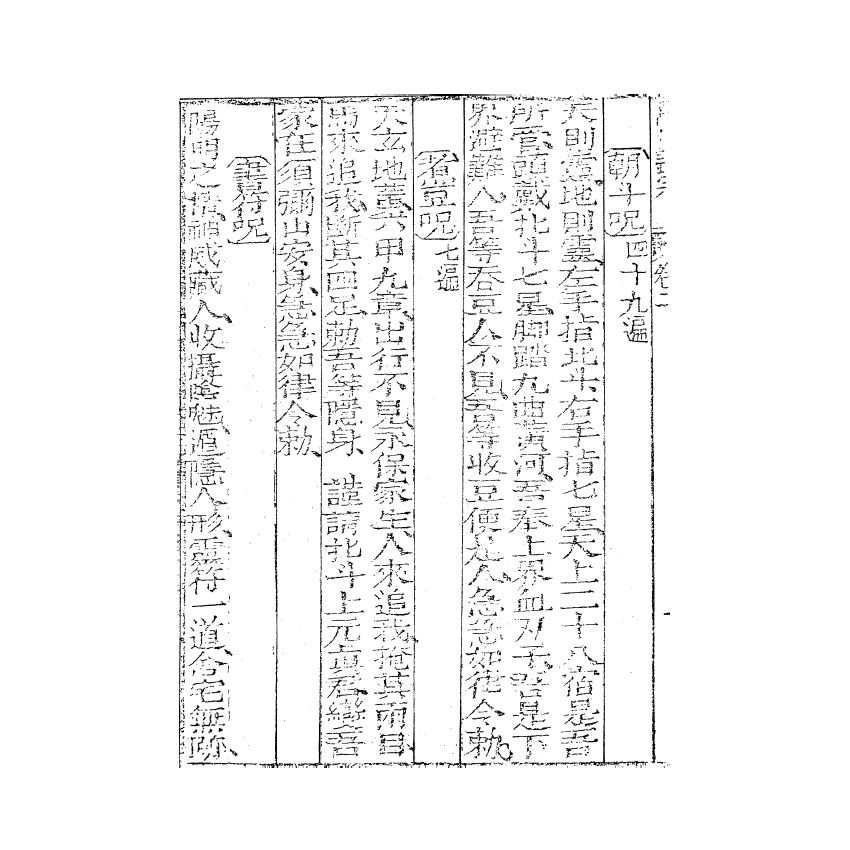 卷二
朝斗呪四十九遍
天則靈地則靈左手指北斗右手指七星天上二十八宿是吾
所管頭戴北斗七星脚踏九曲黃河吾奉上界血刃天吾是下
界避難人吾等吞豆人不見吾等收豆便是人急急如律令勅
煮豆呪七遍
天玄地黃六甲九章出行不見永保家生人來追我掩其兩目
馬來追我斷其四足勅吾等隱身 謹請北斗上元真君變吾
家在須彌山安身急急如律令勅
書符呪
陽明之精神威藏人收攝陰魅遁隱人形靈符一道舍宅無跡